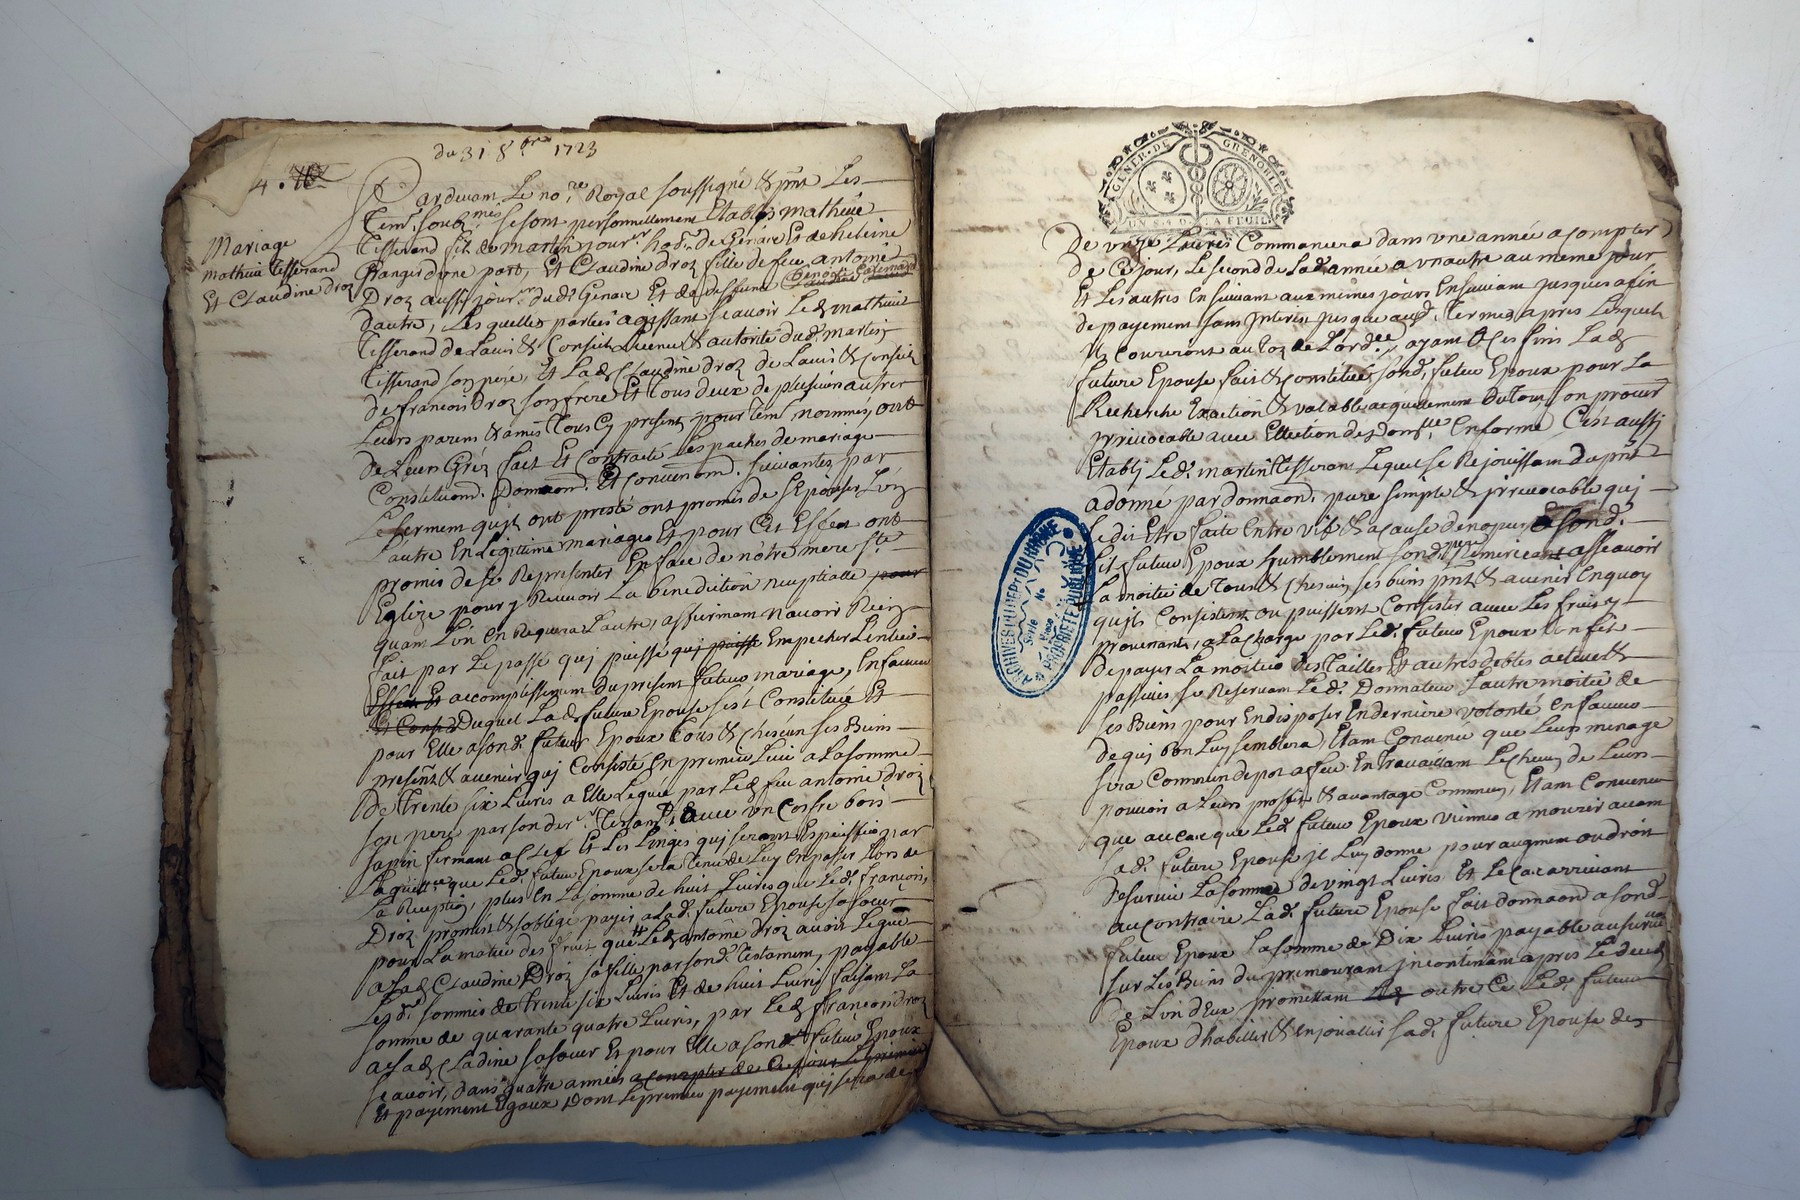 du 31 8.bre 1723
4.
Mariage
mathieu Tisserand
Et Claudine droz
Pardevant Le no.re Royal soussigné & pnt Les
Tem. soub.nes se sont personnellement Etablis mathieu
Tisserand fils de martin jour.er hab. de Genair Et de
Granger d'une part, Et Claudine droz fille de feu antoine
Droz aussi jour.er du d. Genair Et de deffunte
d'autre, Lesquelles parties agissant scavoir Le d. mathieu
Tisserand de L'avis & Conseil & autorité du d. martin
Tisserand son pere, Et La d. Claudine droz de L'avis & Conseil
de francois Droz son frere Et Tous deux de plusieurs autres
Leurs parens & amis Tous Cy present pour Tem. nommés, ont
de Leur Gréz fait Et Contracté Les paches de mariage
Constitutiond. Donnaond. Et Convennond. suivantes par
Le serment qu'jls ont presté ont promis de s'Epouser L'un
L'autre En Legittime mariage Et pour Cet Effet ont
promis de se Representer En face de nôtre mere s.te
Eglize pour y Recevoir La benediction nuptialle pour
quam L'un En Requerra L'autre, affirmam n'avoir Rien
fait par Le passé quj puisse quj puisse Empecher L'entier
Effet Et accomplissement du present futeur mariage, En faveur
duquel La d. future Epouse s'est Constituée Et
pour Elle a son d. futeur Epoux Tous & Chacun ses Biens
present & avenir quj Consiste En premier Lieu a La somme
De Trente six Livres a Elle Leguée par Le d. feu antoine droz
son pere par son der. Testam. avec un Coffre bois
sapin fermant a Clef Et Les Linges quj seront Especiffiés par
La quitt.ce que Le d. futeur Epoux sera Tenu de Luy En passer Lors de
La Reception, plus En La somme de huit Livres que Le d. francois
Droz promis & s'oblige payer a La d. future Epouse sa soeur
pour La moitié des fruit que Le d. antoine droz avoit Legué
a La d. Claudine Droz sa fille par son d. Testamem, payable
Les d. sommes de Trente six Livres Et de huit Livres faisant La
somme de quarante quatre Livres, par Le d. francois droz
a La d. Cladine sa soeur Et pour Elle a son d. futeur Epoux
scavoir, dans quatre années a Compter de Ce jour Le premier
Et payement Egaux Dont Le premier payement quj sera de
GENER. DE GRENOBLE
UN S. 4 D. LA FEUIL
De unze Livres Commancera dans une année a Compter
de Ce jour, Le second de La d. année a un autre au meme jour
Et Les autres En suivant aux mêmes jours Ensuivam jusques a fin
de payement sans Interest jusque aux d. Termes apres Lesquels
Ils Courreront au Toz de L'ord.ce, ayant a Ces fins La d.
future Epouse fait & constitué son d. futeur Epoux pour La
Recherche Exaction & valable acquittement du Tout son procur
jrrivocable avec Ellection de dom.lle En forme C'est aussj
Etablj Le d. martin Tisseran Lequel se Rejouissam du pnt
a donné par donnaond. pure simple & jrrevocable quj
se dit Etre faite Entre vifs & a Cause de nopces a son d.
fils futeur Epoux humblement son d. pere Remerciant a sscavoir
La moitié de Tous & Chacun ses biens pnt & avenir En quoy
qu'jls Consistent ou puissent Consister avec Les fruis
provenants, a La Charge par Le d. futeur Epoux son fils
de payer La moitié des Tailles Et autres debtes actives &
passives se Reservam Le d. Donnateur L'autre moitié de
ses Biens pour En disposer En derniere volonté En faveur
de quj bon Luy semblera, Etam Convenu que Leurs menage
sera Commun de pot a feu En Travaillam Le Chacun de Leurs
pouvoir a Leurs proffit & avantage Commun, Etam Convenu
que au Cas que Le d. futeur Epoux vienne a mourir avam
La d. future Epouse jl Luy donne pour augmen ou droit
de survie La somme de vingt Livres Et Le Cas arrivant
au Contraire La d. future Epouse fait donnaond a son d.
futeur Epoux La somme de Dix Livres payable au survivant
sur Les Biens du premouram jncontinam apres Le deced
de L'un d'Eux promettam outre Ce Le d. futeur
Epoux d'habiller & Enjoualler sa d. future Epouse des
ARCHIVES DU DEP. DU RHÔNE
Série
No
PROPRIÉTÉ PUBLIQUE